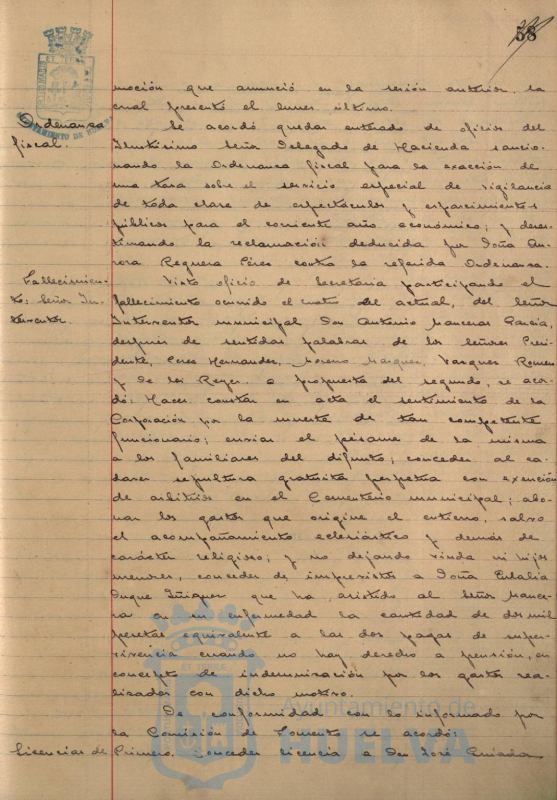 58
moción que anunció en la sesión anterior, la
cual presentó el lunes último.
Ordenanza
fiscal.
Se acordó quedar enterado de oficios del
Ilustrísimo Señor Delegado de Hacienda sancio-
nando la Ordenanza fiscal para la exacción de
una tasa sobre el servicio especial de vigilancia
de toda clase de espectáculos y esparcimientos
públicos para el corriente año económico; y deses-
timando la reclamación deducida por Doña Au-
rora Reguera Pérez contra la referida Ordenanza.
Fallecimien-
to: Señor In-
terventor.
Visto oficio de Secretaría participando el
fallecimiento ocurrido el cuatro del actual, del Señor
Interventor municipal Don Antonio Manceras García,
después de sentidas palabras de los señores Presi-
dente, Pérez Hernández, Moreno Márquez, Vázquez Romero
y De los Reyes, a propuesta del segundo, se acor-
dó: Hacer constar en acta el sentimiento de la
Corporación por la muerte de tan competente
funcionario; enviar el pésame de la misma
a los familiares del difunto; conceder al ca-
dáver sepultura gratuita perpetua con exención
de arbitrios en el Cementerio municipal; abo-
nar los gastos que origine el entierro, salvo
el acompañamiento eclesiástico y demás de
carácter religioso; y no dejando viuda ni hijos
menores, conceder de imprevistos a Doña Eulalia
Duque Iñiguez que ha asistido al señor Mance-
ra en su enfermedad la cantidad de dos mil
pesetas equivalente a las dos pagas de super-
vivencia cuando no hay derecho a pensión, en
concepto de indemnización por los gastos rea-
lizados con dicho motivo.
De conformidad con lo informado por
la Comisión de Fomento se acordó:
Licencias de
Primero. Conceder licencia a Don José Quiada
Ayuntamiento de
HUELVA